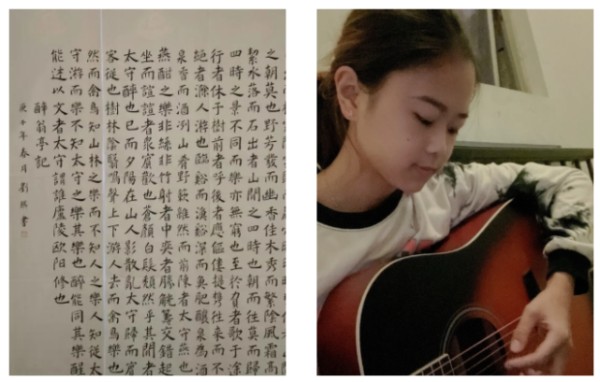 之朝莫也野芳發而幽香佳木秀而繁陰風霜高
絜水落而石出者山間之四時也朝而往莫而歸
四時之景不同而樂亦無窮也至於負者歌于塗
行者休于樹前者呼後者應傴僂提攜往來而不
絕者滁人游也臨谿而漁谿深而魚肥釀泉為酒
泉香而酒洌山肴野蔌雜然而前陳者太守燕也
燕酣之樂非絲非竹射者中奕者勝觥籌交錯起
坐而諠譁者衆賓歡也蒼顏白髮頹然乎其間者
太守醉也已而夕陽在山人影散亂太守歸而賓
客從也樹林陰翳鳴聲上下游人去而禽鳥樂也
然而禽鳥知山林之樂而不知人之樂人知從太
守游而樂不知太守之樂其樂也醉能同其樂醒
能述以文者太守謂誰廬陵欧阳修也
醉翁亭記
年春月劉書